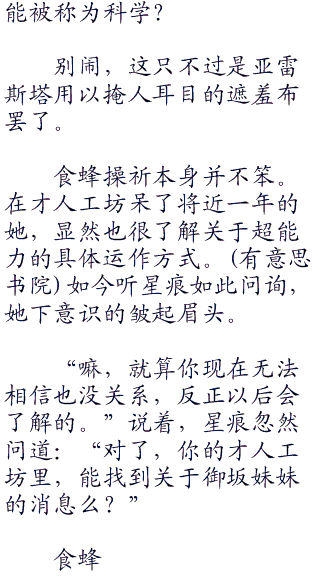 能被称为科学？
别闹，这只不过是亚雷
斯塔用以掩人耳目的遮羞布
罢了。
食蜂操祈本身并不笨。
在才人工坊呆了将近一年的
她，显然也很了解关于超能
力的具体运作方式。(有意思
书院)如今听星痕如此问询，
她下意识的皱起眉头。
“嘛，就算你现在无法
相信也没关系，反正以后会
了解的。”说着，星痕忽然
问道：“对了，你的才人工
坊里，能找到关于御坂妹妹
的消息么？”
食蜂